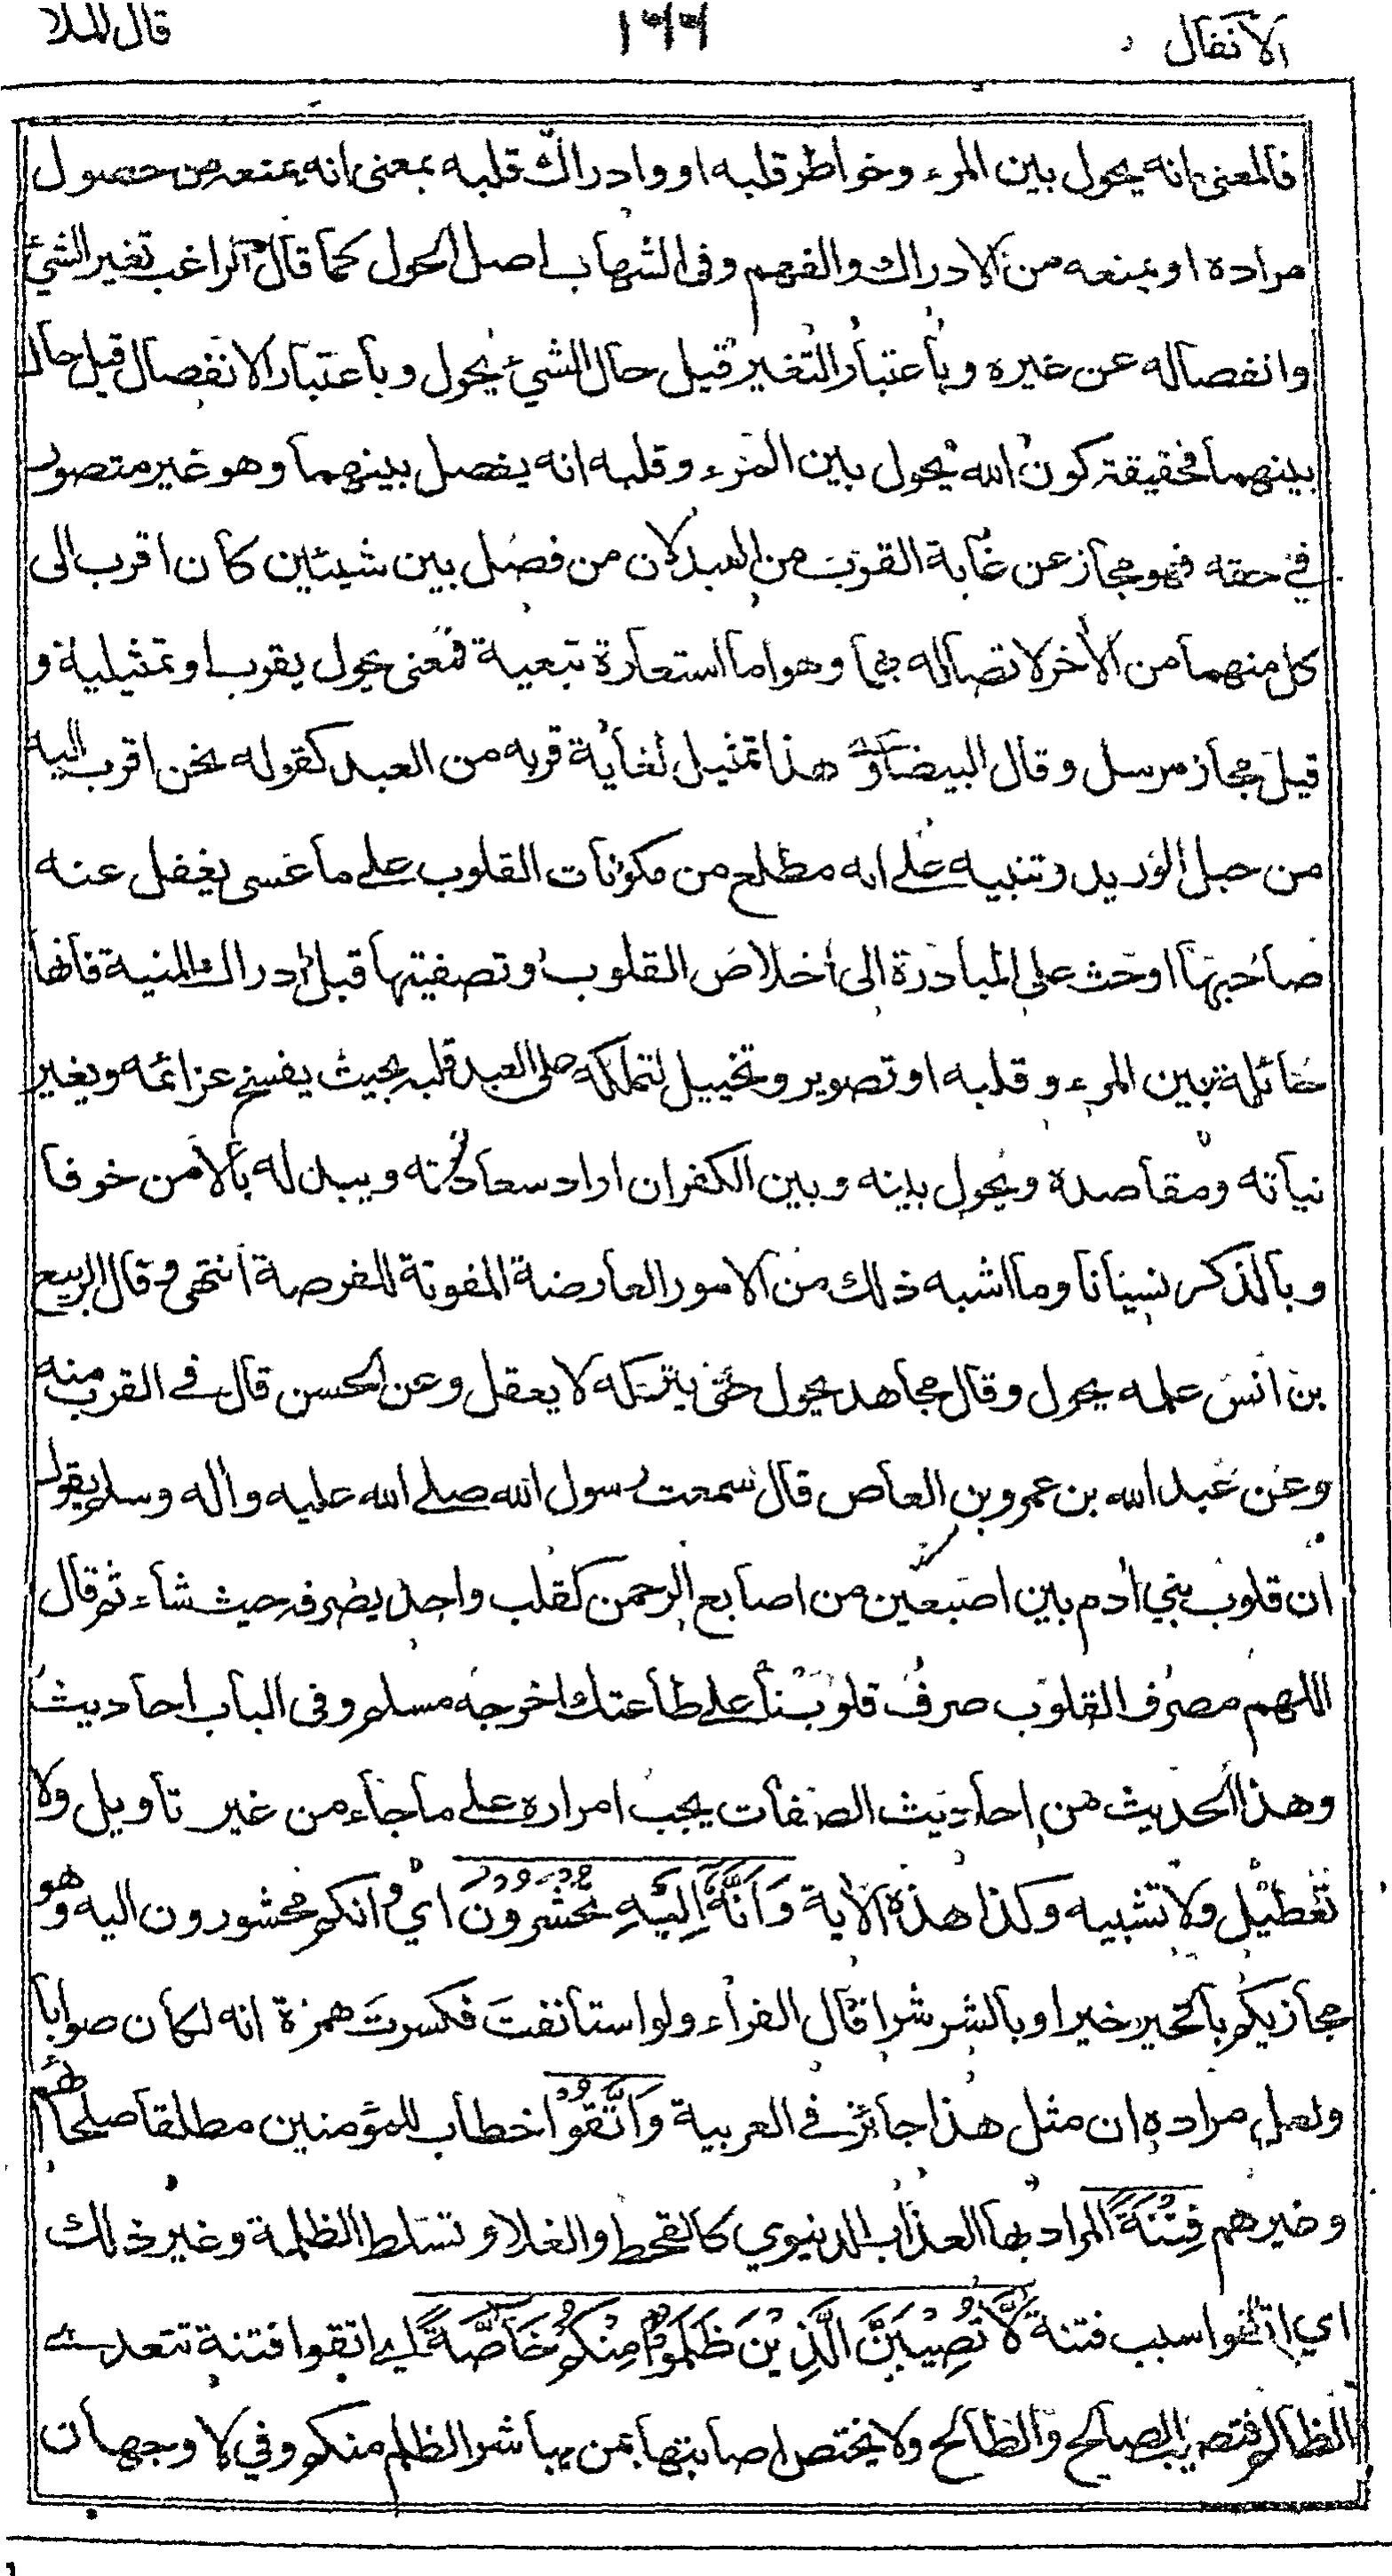 الانفال
١٦٦
قال الملا
فالمعنى انه يحول بين المرء وخواطر قلبه او وادراك قلبه بمعنى انه يمنعه من حصول
مراده او يمنعه من الادراك والفهم وفى الشهاب اصل الحول كما قال الراغب تغير الشئ
وانفصاله عن غيره وباعتبار التغير قيل حال الشئ يحول وباعتبار الانفصال قيل حال
بينهما فحقيقة كون الله يحول بين المرء وقلبه انه يفصل بينهما وهو غير متصور
في حقه فهو مجاز عن غاية القرب من العبد لان من فصل بين شيئين كان اقرب الى
كل منهما من الاخر لاتصاله بهما وهو اما استعارة تبعية فمعنى يحول يقرب او تمثيلية و
قيل مجاز مرسل وقال البيضاوي هذا تمثيل لغاية قربه من العبد كقوله نحن اقرب اليه
من حبل الوريد وتنبيه على انه مطلع من مكونات القلوب على ما عسى يغفل عنه
صاحبها او حث على المبادرة الى اخلاص القلوب وتصفيتها قبل ادراك المنية فانها
حائلة بين المرء وقلبه او تصوير وتخييل لتملكه على العبد قلبه بحيث يفسخ عزائمه ويغير
نياته ومقاصده ويحول بينه وبين الكفر ان اراد سعادته ويبدله بالامن خوفا
وبالذكر نسيانا وما اشبه ذلك من الامور العارضة المفوتة للفرصة انتهى وقال الربيع
بن انس علمه يحول وقال مجاهد يحول حتى يتركه لا يعقل وعن الحسن قال في القرب منه
وعن عبد الله بن عمرو بن العاص قال سمعت رسول الله صلى الله عليه واله وسلم يقول
ان قلوب بني ادم بين اصبعين من اصابع الرحمن كقلب واحد يصرفه حيث شاء ثم قال
اللهم مصرف القلوب صرف قلوبنا على طاعتك اخرجه مسلم وفى الباب احاديث
وهذا الحديث من احاديث الصفات يجب امراره على ما جاء من غير تاويل ولا
تعطيل ولا تشبيه وكذا هذه الاية وَاَنَّهٗٓ اِلَيْهِ تُحْشَرُوْنَ اي وانكم محشورون اليه وهو
مجازيكم بالخير خيرا وبالشر شرا قال الفراء ولو استانفت فكسرت همزة انه لكان صوابا
ولعل مراده ان مثل هذا جائز في العربية وَاتَّقُوْا خطاب للمؤمنين مطلقا صلحائهم
وغيرهم فِتْنَةً المراد بها العذاب الدنيوي كالقحط والغلاء وتسلط الظلمة وغير ذلك
اي اتقوا سبب فتنة لَّا تُصِيْبَنَّ الَّذِيْنَ ظَلَمُوْا مِنْكُمْ خَآصَّةً اي اتقوا فتنة تتعدى
الظالم فتصيب الصالح والطالح ولا يختص اصابتها بمن يباشر الظلم منكم وفي لا وجهان